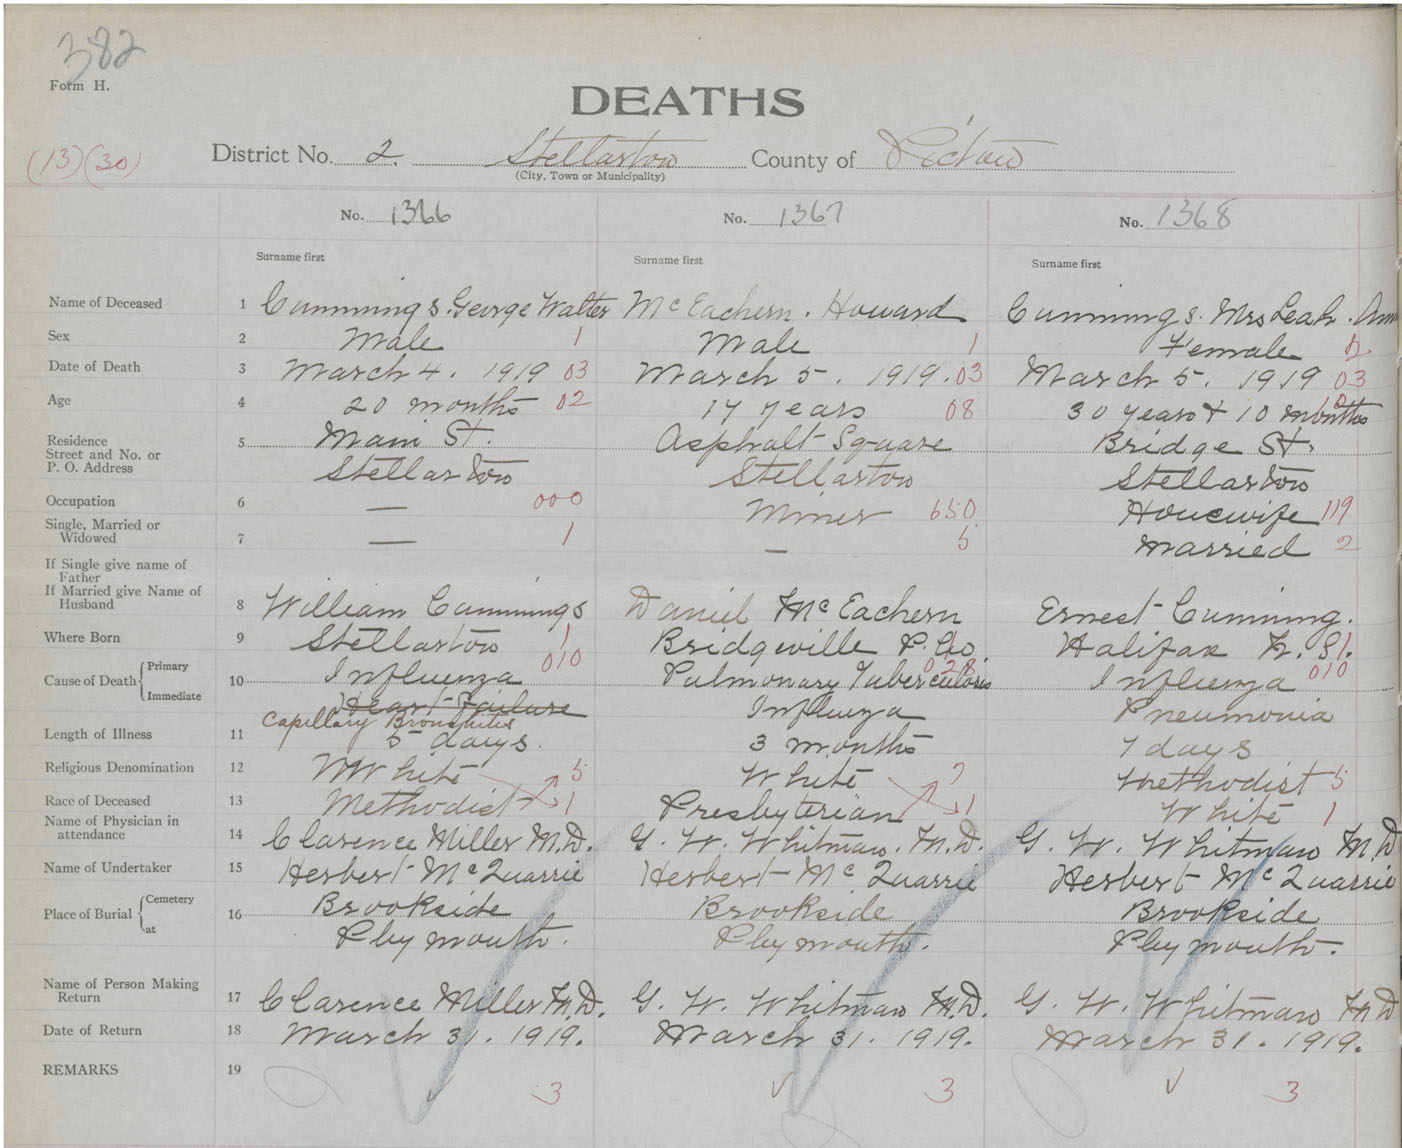 382
Form H.
DEATHS
(13) (30)
District No. 2. Stellarton County of Pictou
(City, Town or Municipality)
No. 1366 No. 1367 No. 1368
Surname first Surname first Surname first
Name of Deceased 1 Cummings. George Walter McEachern. Howard Cummings. Mrs Leah. Ann
Sex 2 Male 1 Male 1 Female 2
Date of Death 3 March 4. 1919 03 March 5. 1919. 03 March 5. 1919 03
Age 4 20 months 02 17 years 08 30 years + 10 months
Residence
Street and No. or 5 Main St. Asphalt Square Bridge St.
P. O. Address Stellarton Stellarton Stellarton
Occupation 6 — 000 Miner 650 Housewife 119
Single, Married or
Widowed 7 — 1 — 5 Married 2
If Single give name of
Father
If Married give Name of
Husband 8 William Cummings Daniel McEachern Ernest Cumming.
Where Born 9 Stellarton 1 Bridgeville P. Co. 1 Halifax N. S. 1
Cause of Death Primary 10 Influenza 010 Pulmonary Tuberculosis 028 Influenza 010
Immediate Heart Failure Influenza Pneumonia
Capillary Bronchitis
Length of Illness 11 5 days. 3 months 7 days
Religious Denomination 12 White 5 White 7 Methodist 5
Race of Deceased 13 Methodist 1 Presbyterian 1 White 1
Name of Physician in
attendance 14 Clarence Miller M.D. G. W. Whitman. M.D. G. W. Whitman M.D
Name of Undertaker 15 Herbert McQuarrie Herbert McQuarrie Herbert McQuarrie
Place of Burial Cemetery 16 Brookside Brookside Brookside
at Plymouth. Plymouth. Plymouth.
Name of Person Making
Return 17 Clarence Miller M.D. G. W. Whitman M.D. G. W. Whitman M.D
Date of Return 18 March 31. 1919. March 31. 1919. March 31. 1919.
REMARKS 19
3 3 3